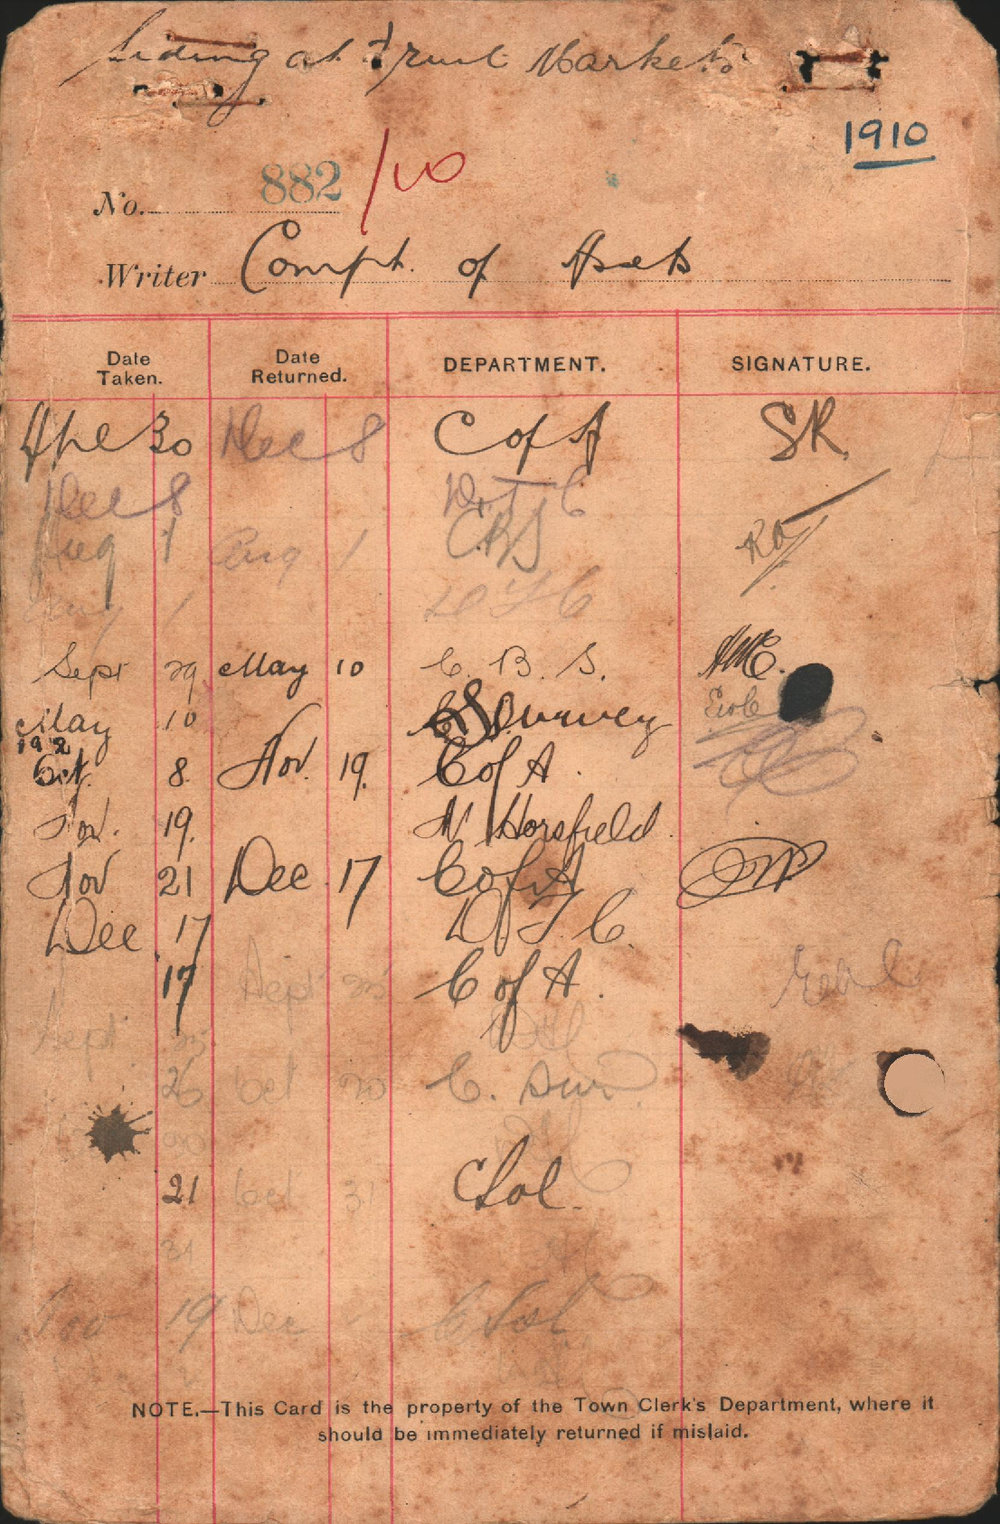 Siding at Fruit Markets
1910
No. 882/10
Writer Compt. of Assets
Date Taken. Date Returned. DEPARTMENT. SIGNATURE.
30 Dec 8 C of A SR.
Dec 8 D.T.C
Aug 1 Aug 1 C.B.S
Aug 1 D T C
Sept 29 May 10 C. B. S.
May 10 C Survey
192
Oct. 8 Nov. 19. C of A.
Nov. 19. N Horsfield.
Nov 21 Dec 17 C of A
Dec 17 D. T. C.
17 Sept 25 C of A.
Sept 25
26 Oct 20 C. Sur
20
21 Oct 31 C Sol.
31
Nov 19 Dec C Sol
NOTE.—This Card is the property of the Town Clerk's Department, where it
should be immediately returned if mislaid.